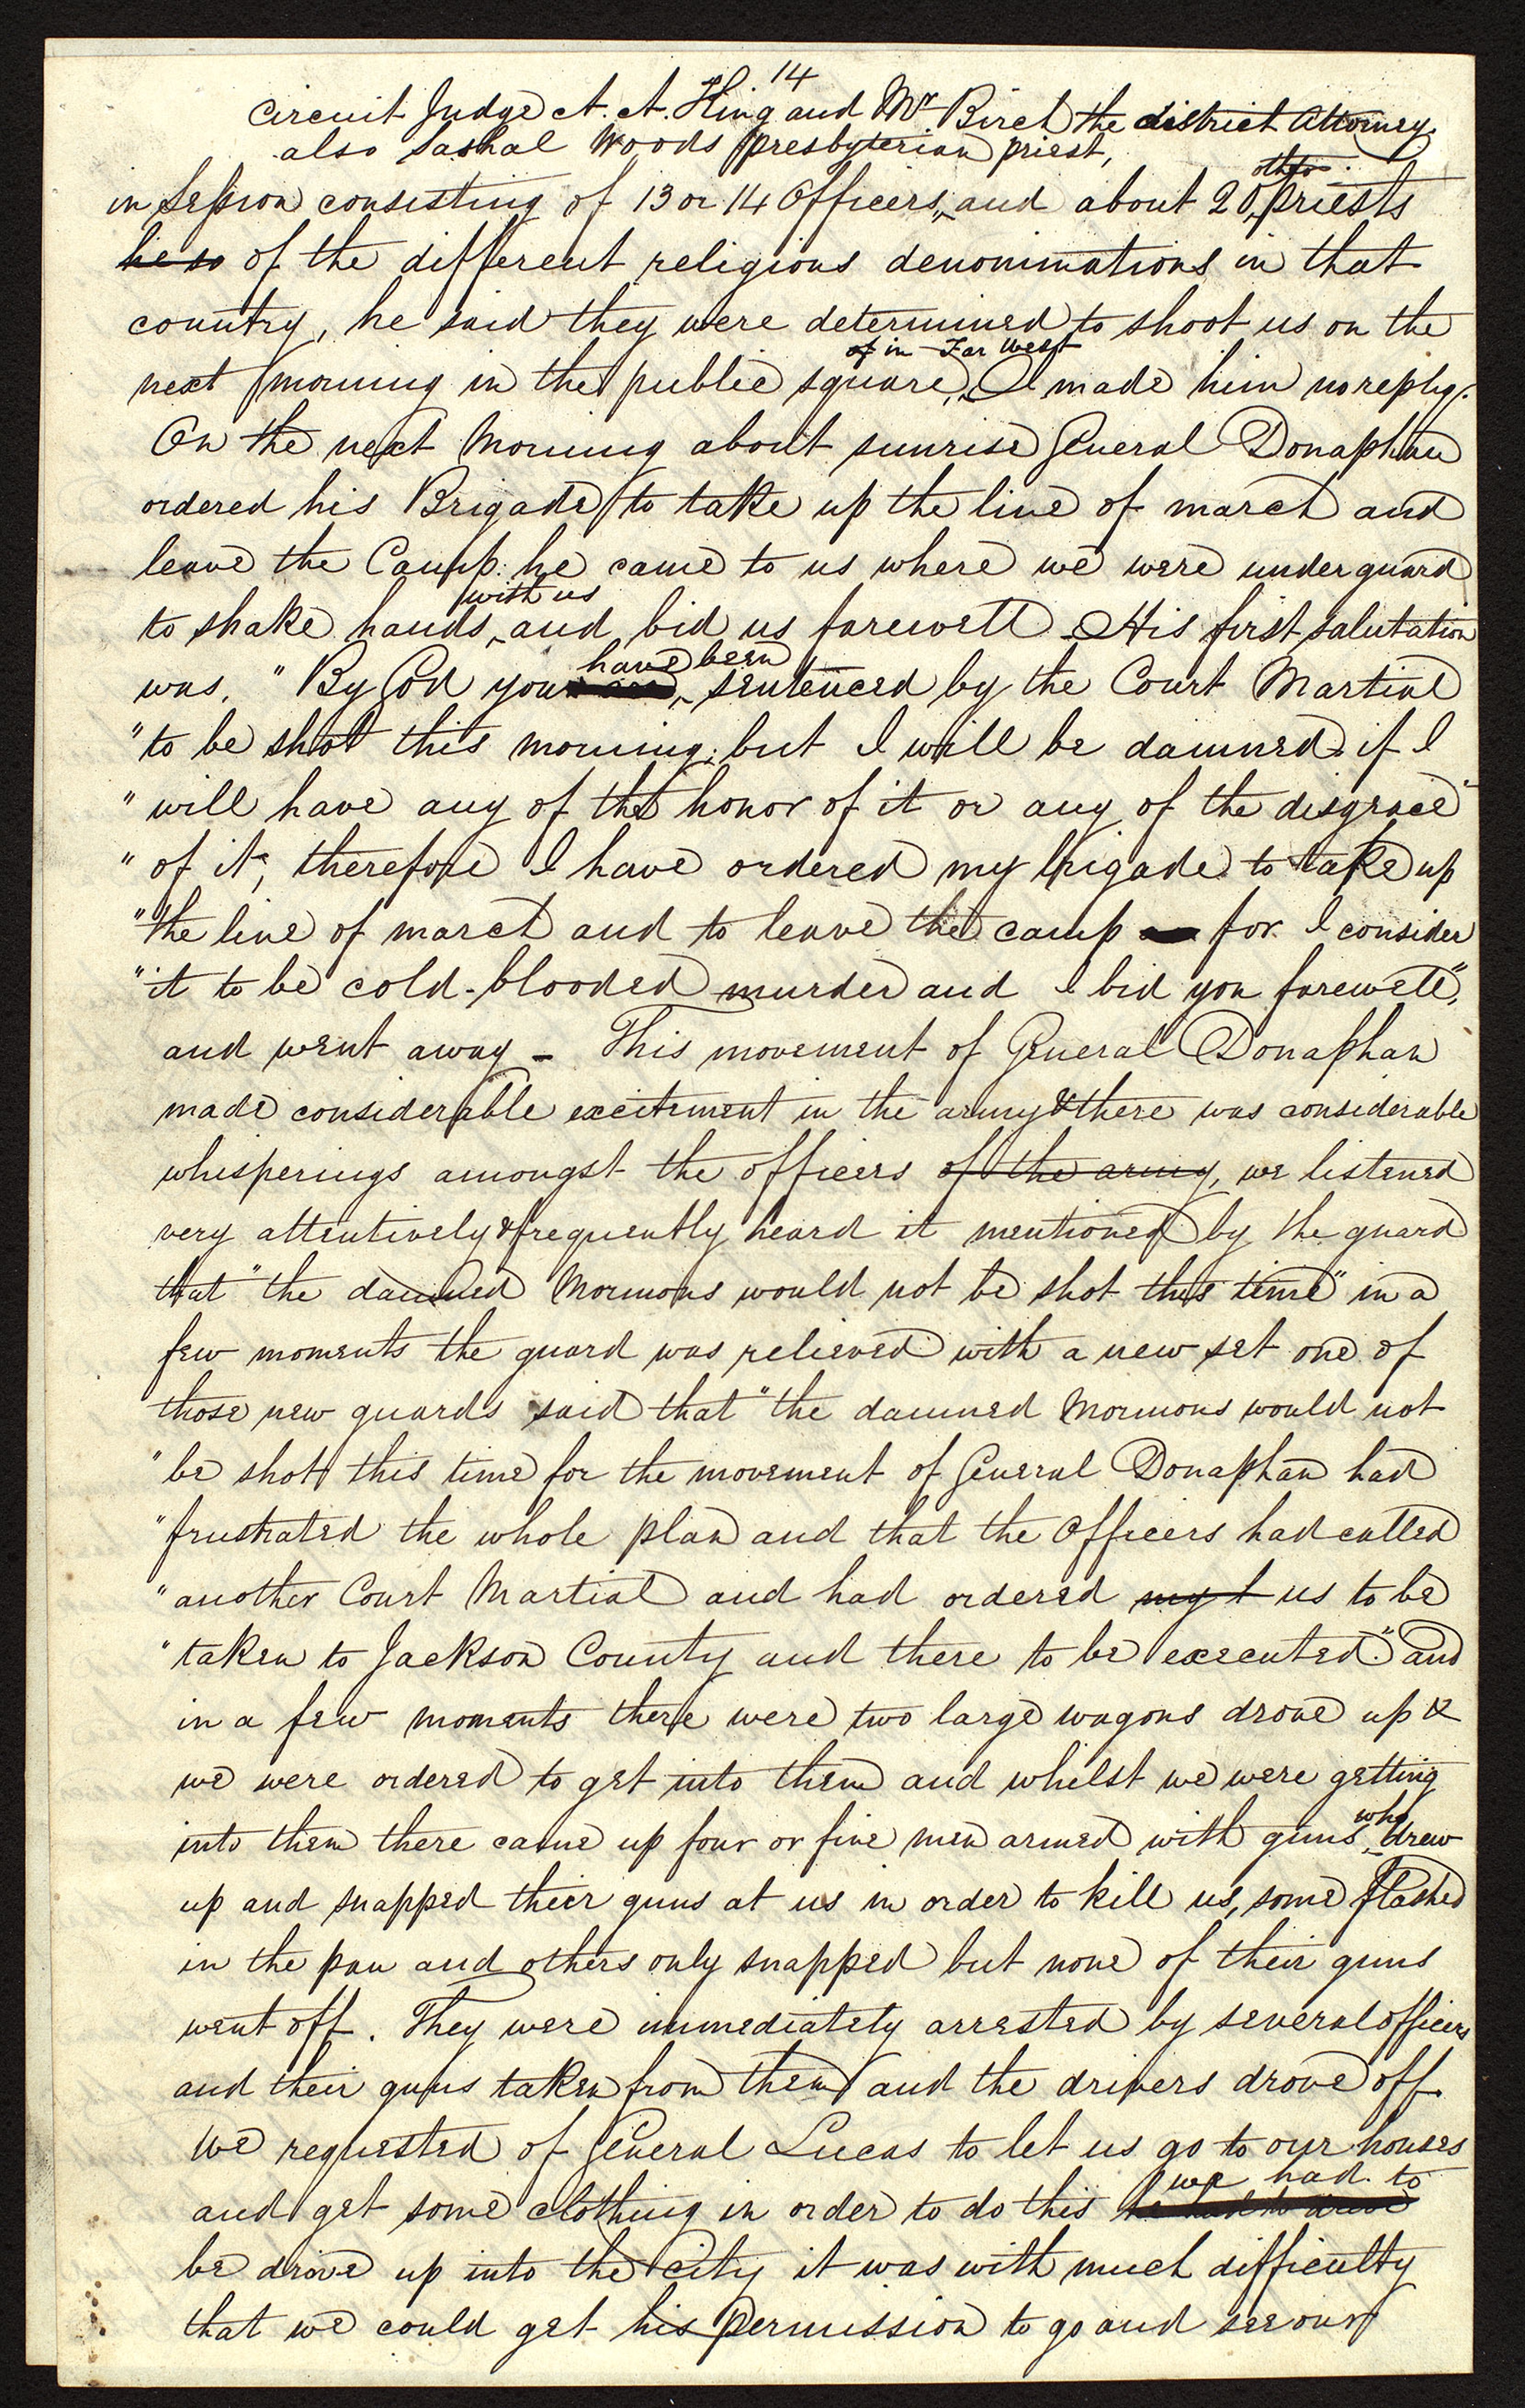 14
Circuit Judge A. A. King and Mr Birch the district Attorney,
also Sashal Woods presbyterian priest,
other
in Session consisting of 13 or 14 Officers, and about 20 priests
he so of the different religious denominations in that
country, he said they were determined to shoot us on the
of in Far West
next morning in the public square, I made him no reply.
On the next Morning about sunrise General Donaphan
ordered his Brigade to take up the line of march and
leave the Camp. he came to us where we were under guard
with us
to shake hands, and bid us farewell. His first salutation
have been
was, "By God you sentenced by the Court Martial
"to be shot this morning; but I will be damned if I
"will have any of the honor of it or any of the disgrace
"of it, therefore I have ordered my brigade to take up
"the line of march and to leave the camp for I consider
"it to be cold-blooded murder and I bid you farewell",
and went away – This movement of General Donaphan
made considerable excitement in the army & there was considerable
whisperings amongst the officers of the army, we listened
very attentively & frequently heard it mentioned by the guard
that "the damned Mormons would not be shot this time" in a
few moments the guard was relieved with a new set one of
those new guards said that "the damned Mormons would not
"be shot this time for the movement of General Donaphan had
"frustrated the whole plan and that the Officers had called
"another Court Martial and had ordered us to be
"taken to Jackson County and there to be executed". and
in a few moments there were two large wagons drove up &
we were ordered to get into them and whilst we were getting
who
into them there came up four or five men armed with guns, drew
up and snapped their guns at us in order to kill us, some flashed
in the pan and others only snapped but none of their guns
went off. They were immediately arrested by several officers
and their guns taken from them and the drivers drove off.
We requested of General Lucas to let us go to our houses
we had to
and get some clothing in order to do this
be drove up into the City it was with much difficulty
that we could get his permission to go and see our